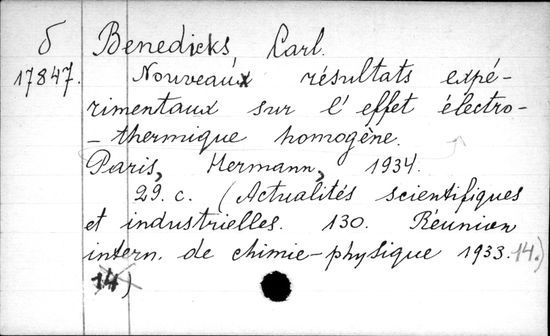 б Benedicks Carl.
17847. Nouveaux résultats expé-
rimentaux sur l'effet électro-
-thermique homogène.
Paris, Hermann, 1934.
29. c. (Actualités scientifiques
et industrielles. 130. Réunion
intern. de chimie-physique 1933. 14.)
14)